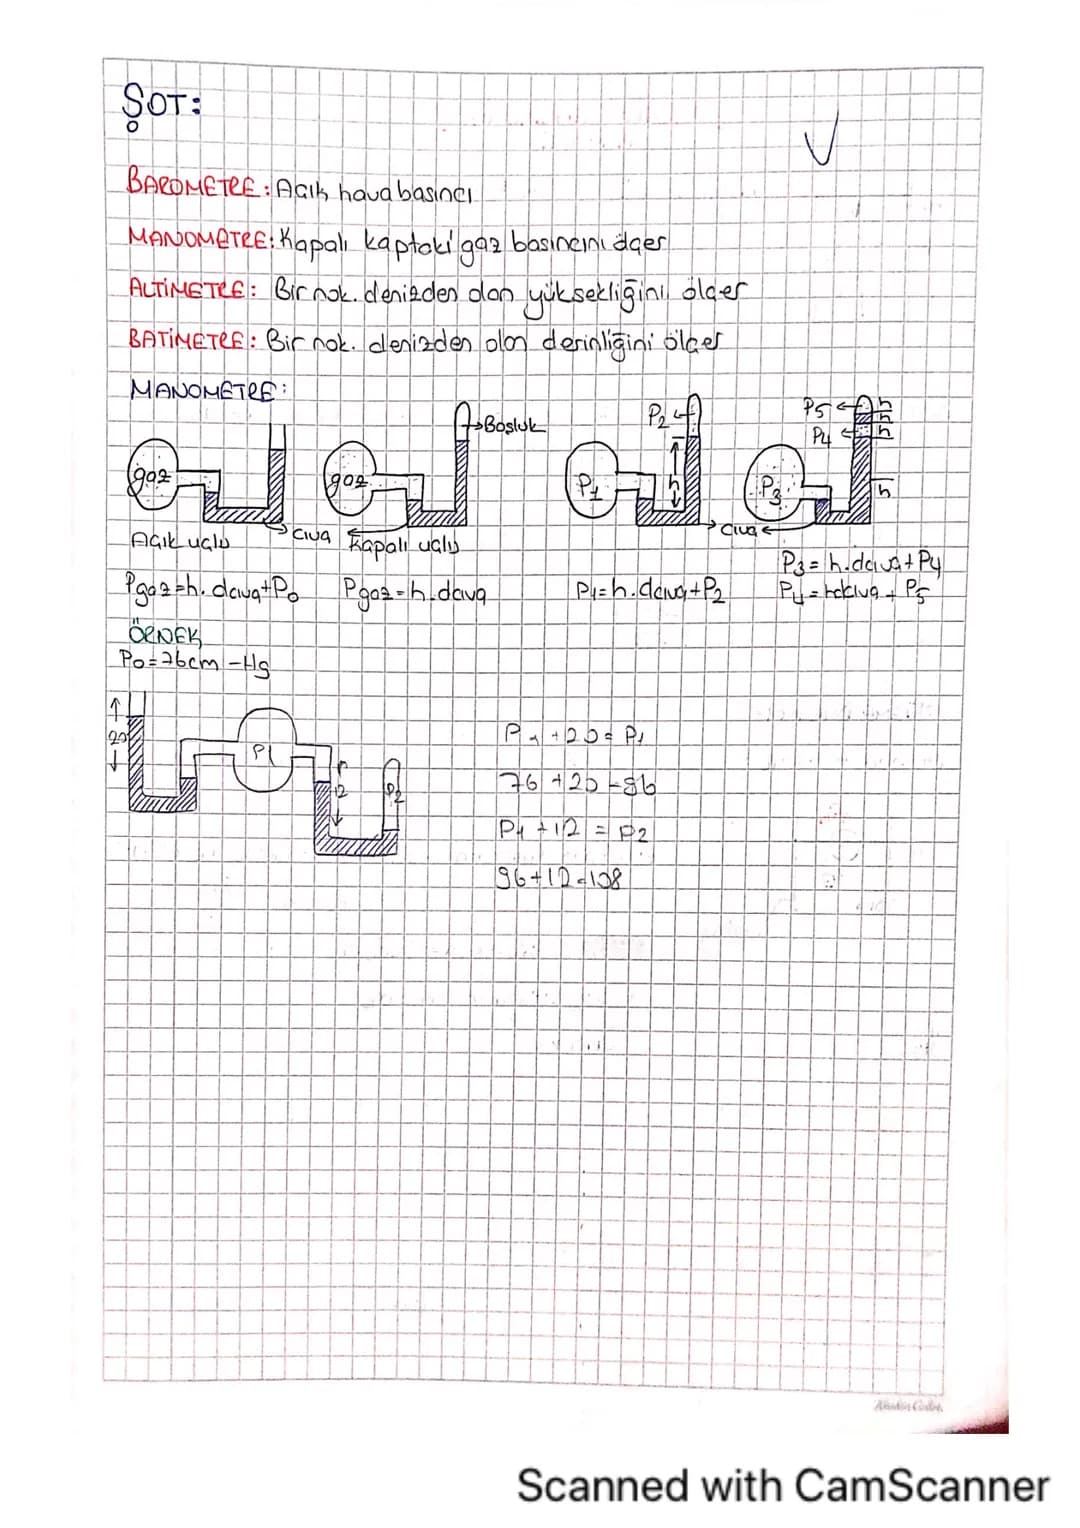 ŞOT:
BAROMETRE: Açık hava basıncı
MANOMETRE: Kapalı kaptaki gaz basıncını ölçer
ALTİMETRE: Bir nok. denizden olan yüksekliğini ölçer
BATİMETRE: Bir nok. denizden olan derinliğini ölçer
MANOMETRE:
gaz
gaz
→Boşluk
P₂
h
P₁
P₅
P₄
P₃
h
h
h
h
Açık uçlu
Civa
Kapalı uçlu
Civa
Pgaz=h.dcıva+P₀
Pgaz=h.dcıva
P₁=h.dcıva+P₂
P₃=h.dcıva+P₄
P₅
ÖRNEK
P₀=76cm-Hg
20
P1
12
P₂
+20=P₁
76+20=96
P₁+12=P2
96+12=108
Scanned with CamScanner